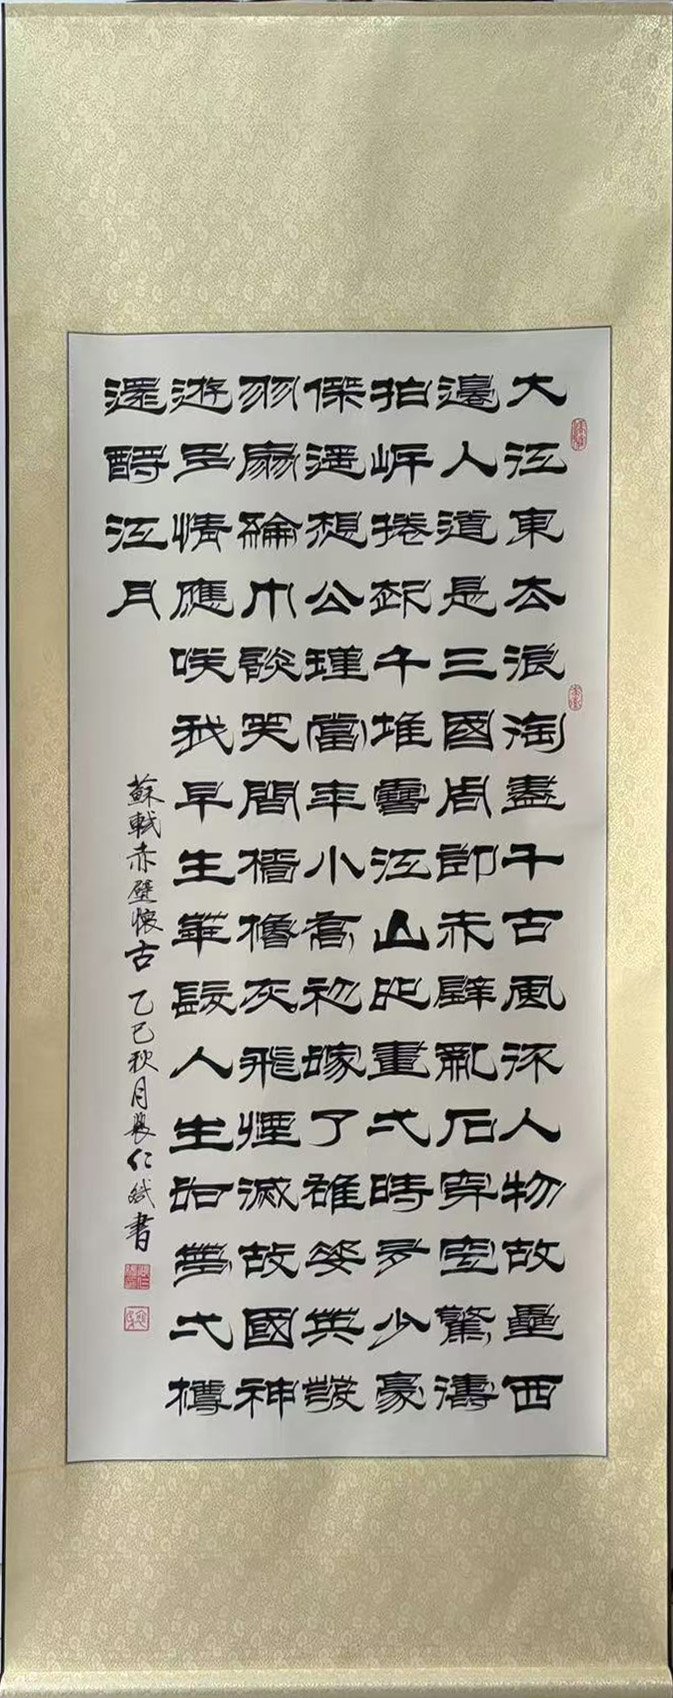 大江東去浪淘盡千古風流人物故壘西
邊人道是三國周郎赤壁亂石穿空驚濤
拍岸捲起千堆雪江山如畫弌時多少豪
傑遙想公瑾當年小喬初嫁了雄姿英發
羽扇綸巾談笑間檣櫓灰飛煙滅故國神
遊多情應咲我早生華髮人生如夢弌樽
還酹江月
蘇軾赤壁懷古 乙巳秋月 仁斌書